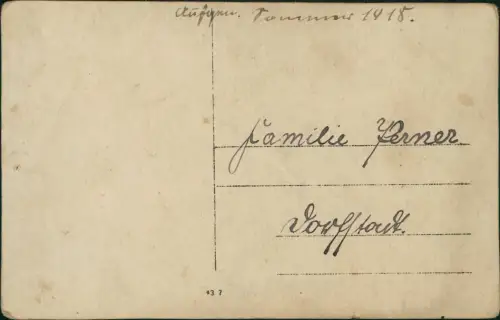 Sommer 1918.
Familie Perner
Dorfstadt.
43 7